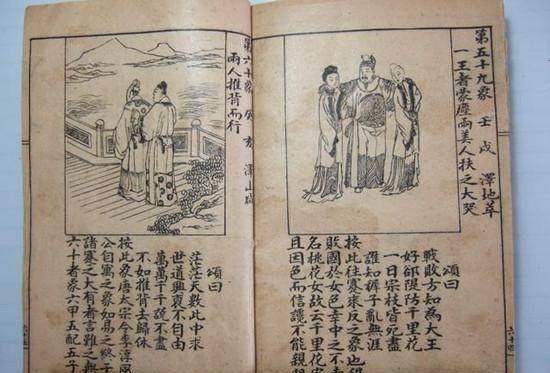 第五十九象 壬戌 澤地萃
一王者蒙塵兩美人扶之大哭
頌曰
戰敗方知為大王
好邵隄防千里花
一日宗枝皆死盡
誰知褲子亂無涯
按此往蹇來反之象也
敗國於女色幸中之不幸
名桃花女故云千里花
且因色而信讒不能親
第六十象 癸亥 澤山咸
兩人推背而行
頌曰
茫茫天數此中求
世道興衰不自由
萬萬千千說不盡
不如推背去歸休
按此象唐太宗令李淳風
公自寓之象如易之終于
諸蹇之大有者言雖之無
六十者象六甲五配五子